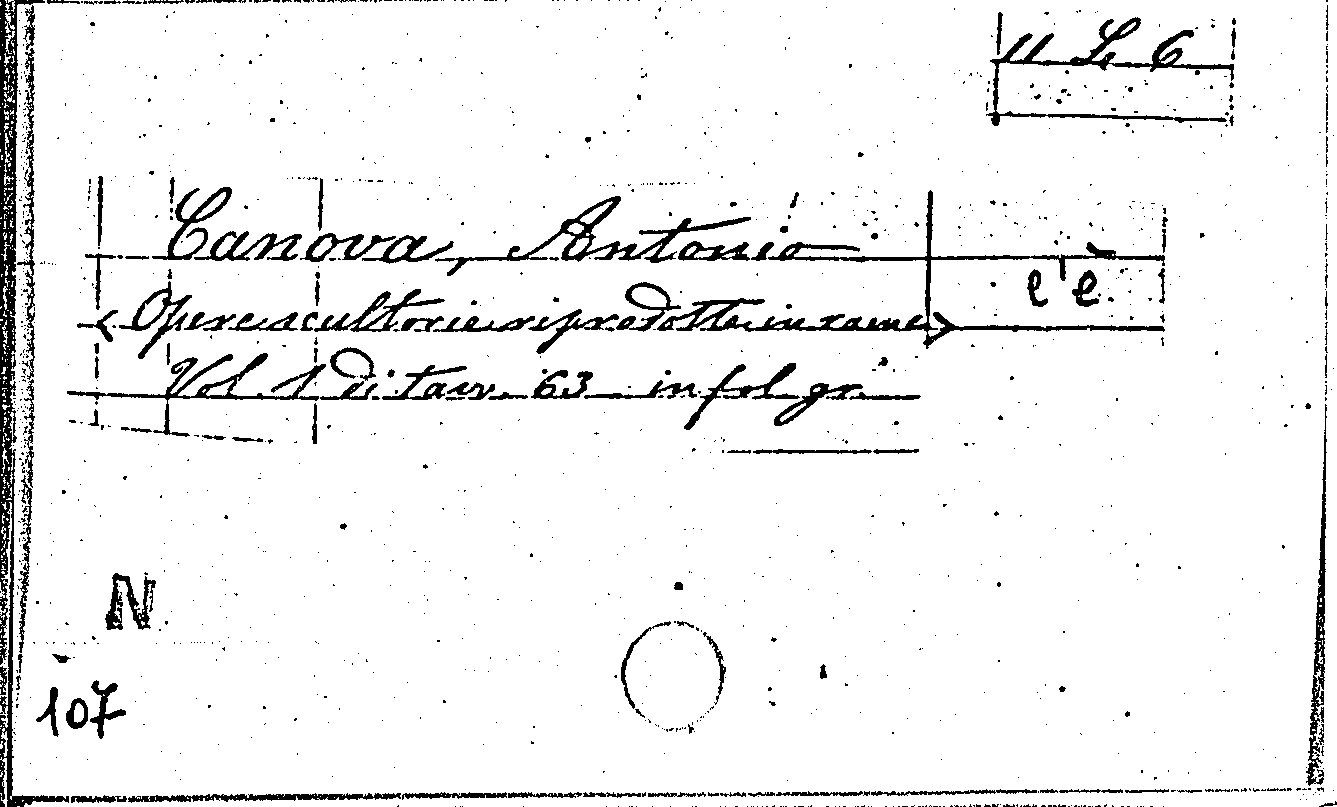 11 L 6
Canova, Antonio
c'è
< Opere scultorie riprodotte in rame >
Vol. 1 di tavv. 63 in fol gr.
N
107